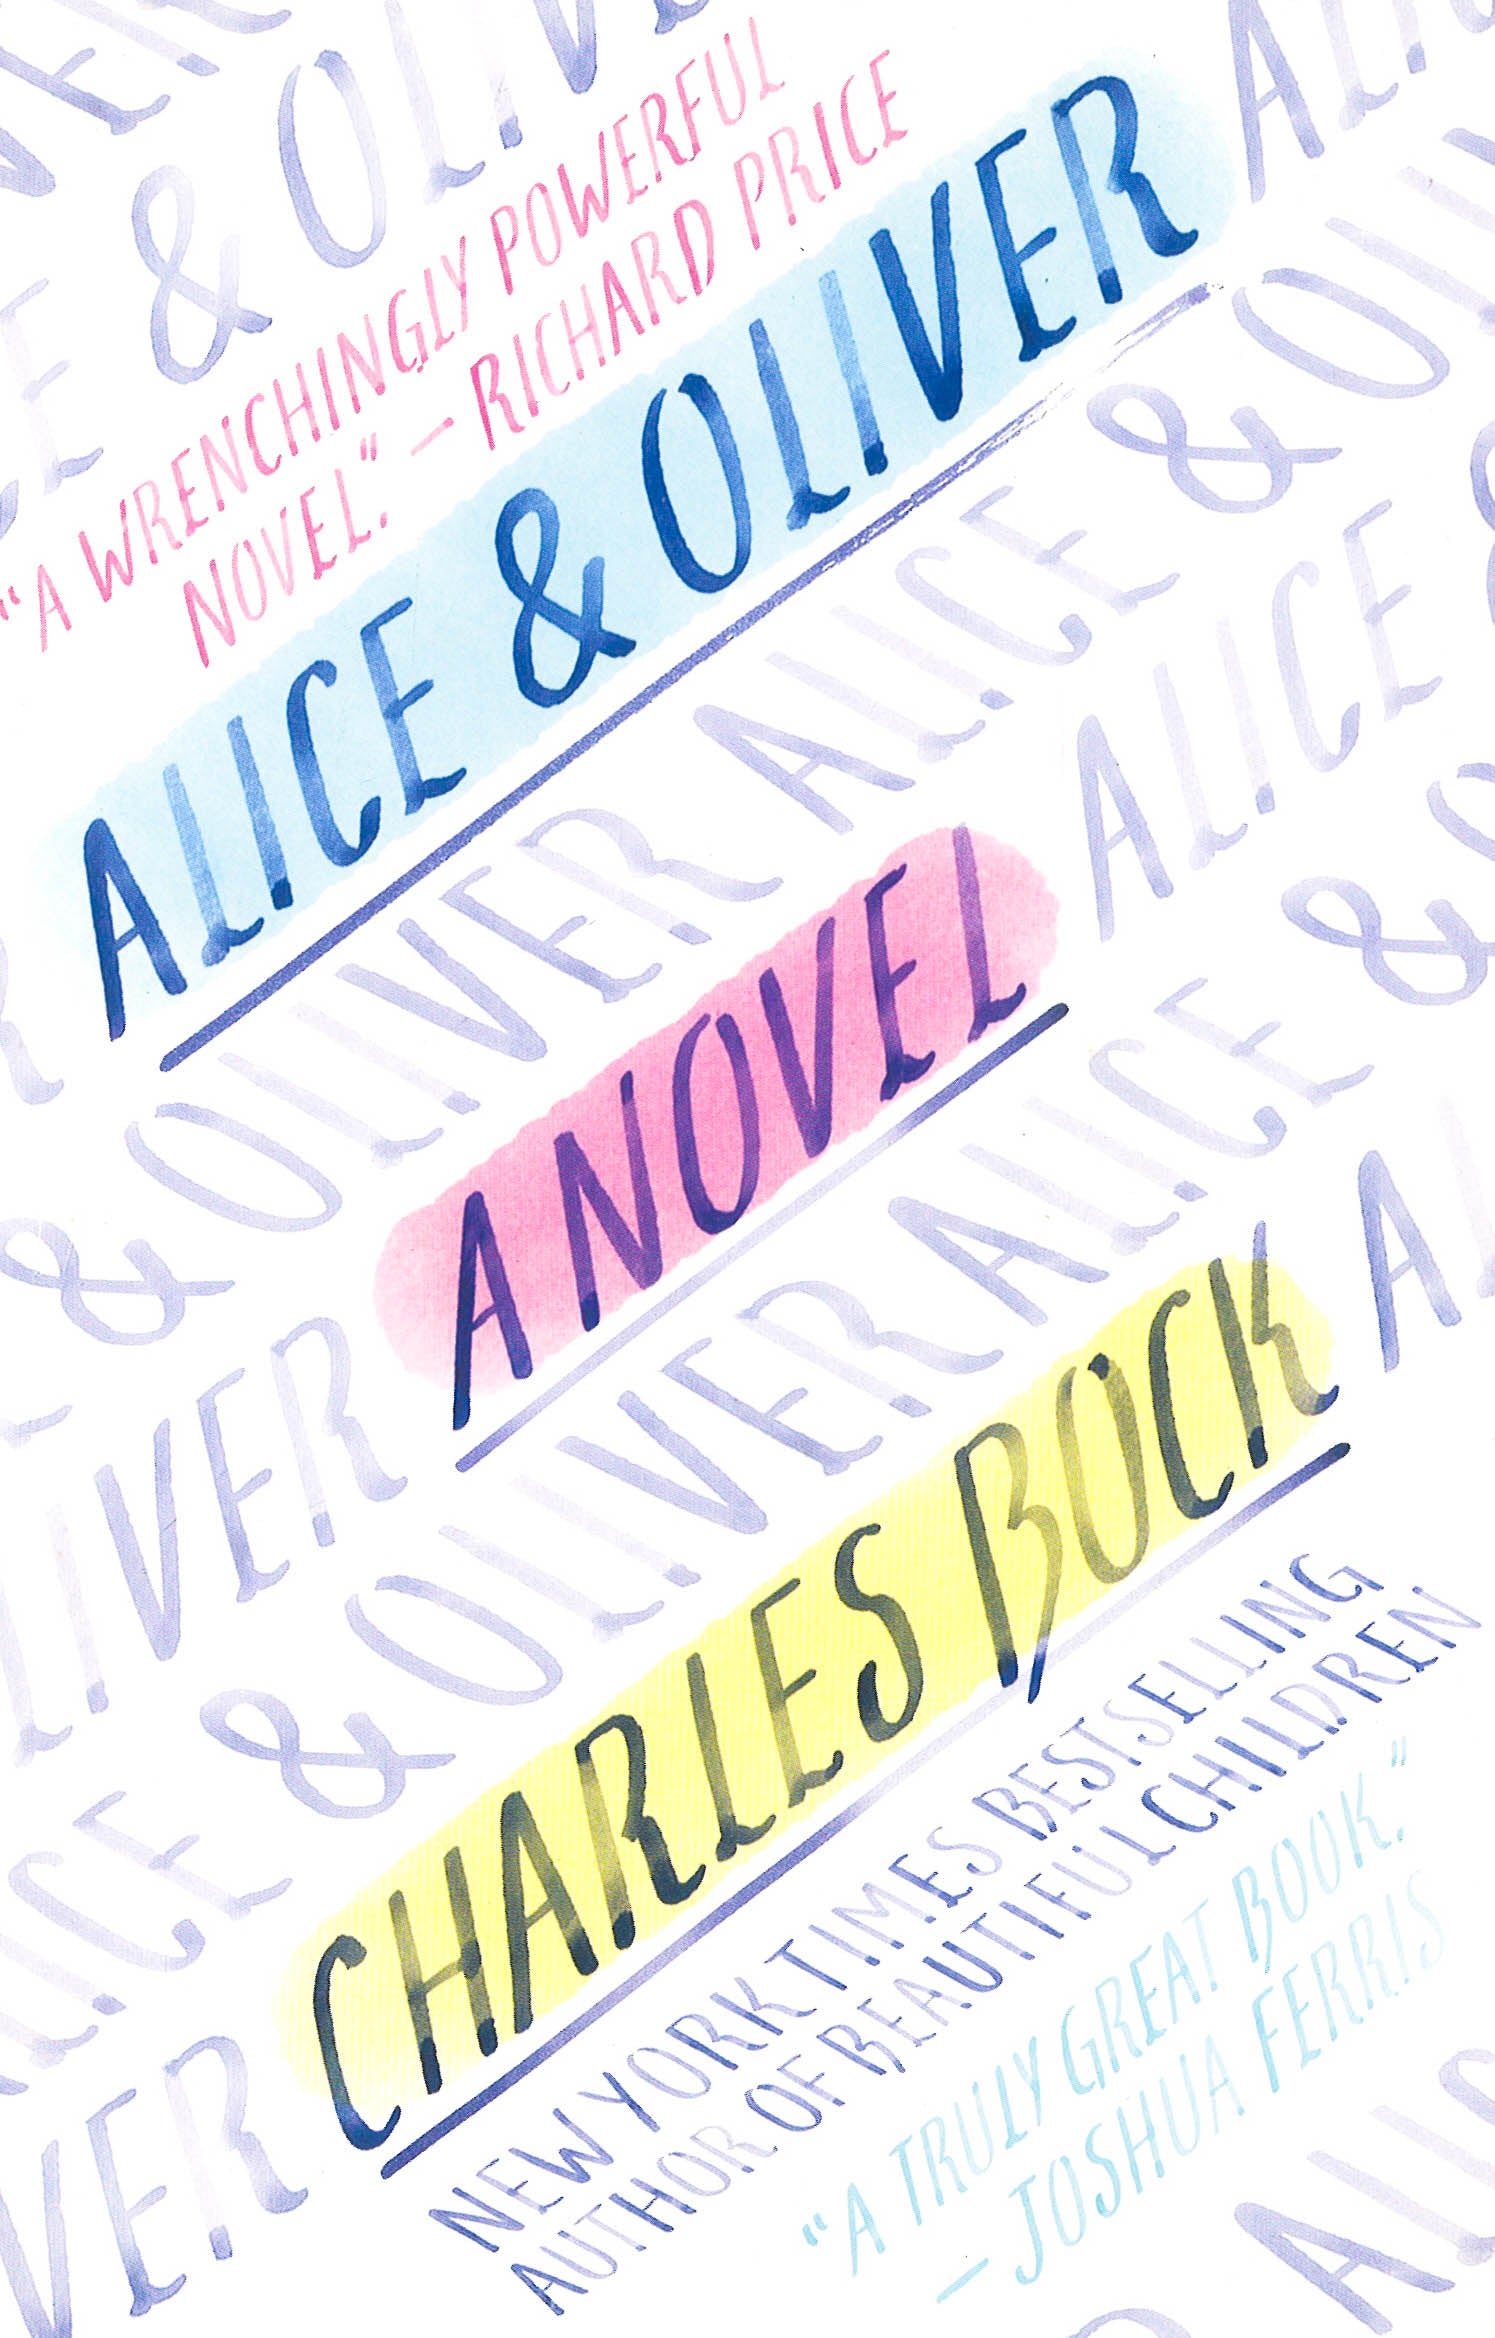 "A WRENCHINGLY POWERFUL
NOVEL." — RICHARD PRICE
ALICE & OLIVER
A NOVEL
CHARLES BOCK
NEW YORK TIMES BESTSELLING
AUTHOR OF BEAUTIFUL CHILDREN
"A TRULY GREAT BOOK."
— JOSHUA FERRIS
& OLIVER ALICE & OLIV
& OLIVER ALICE &